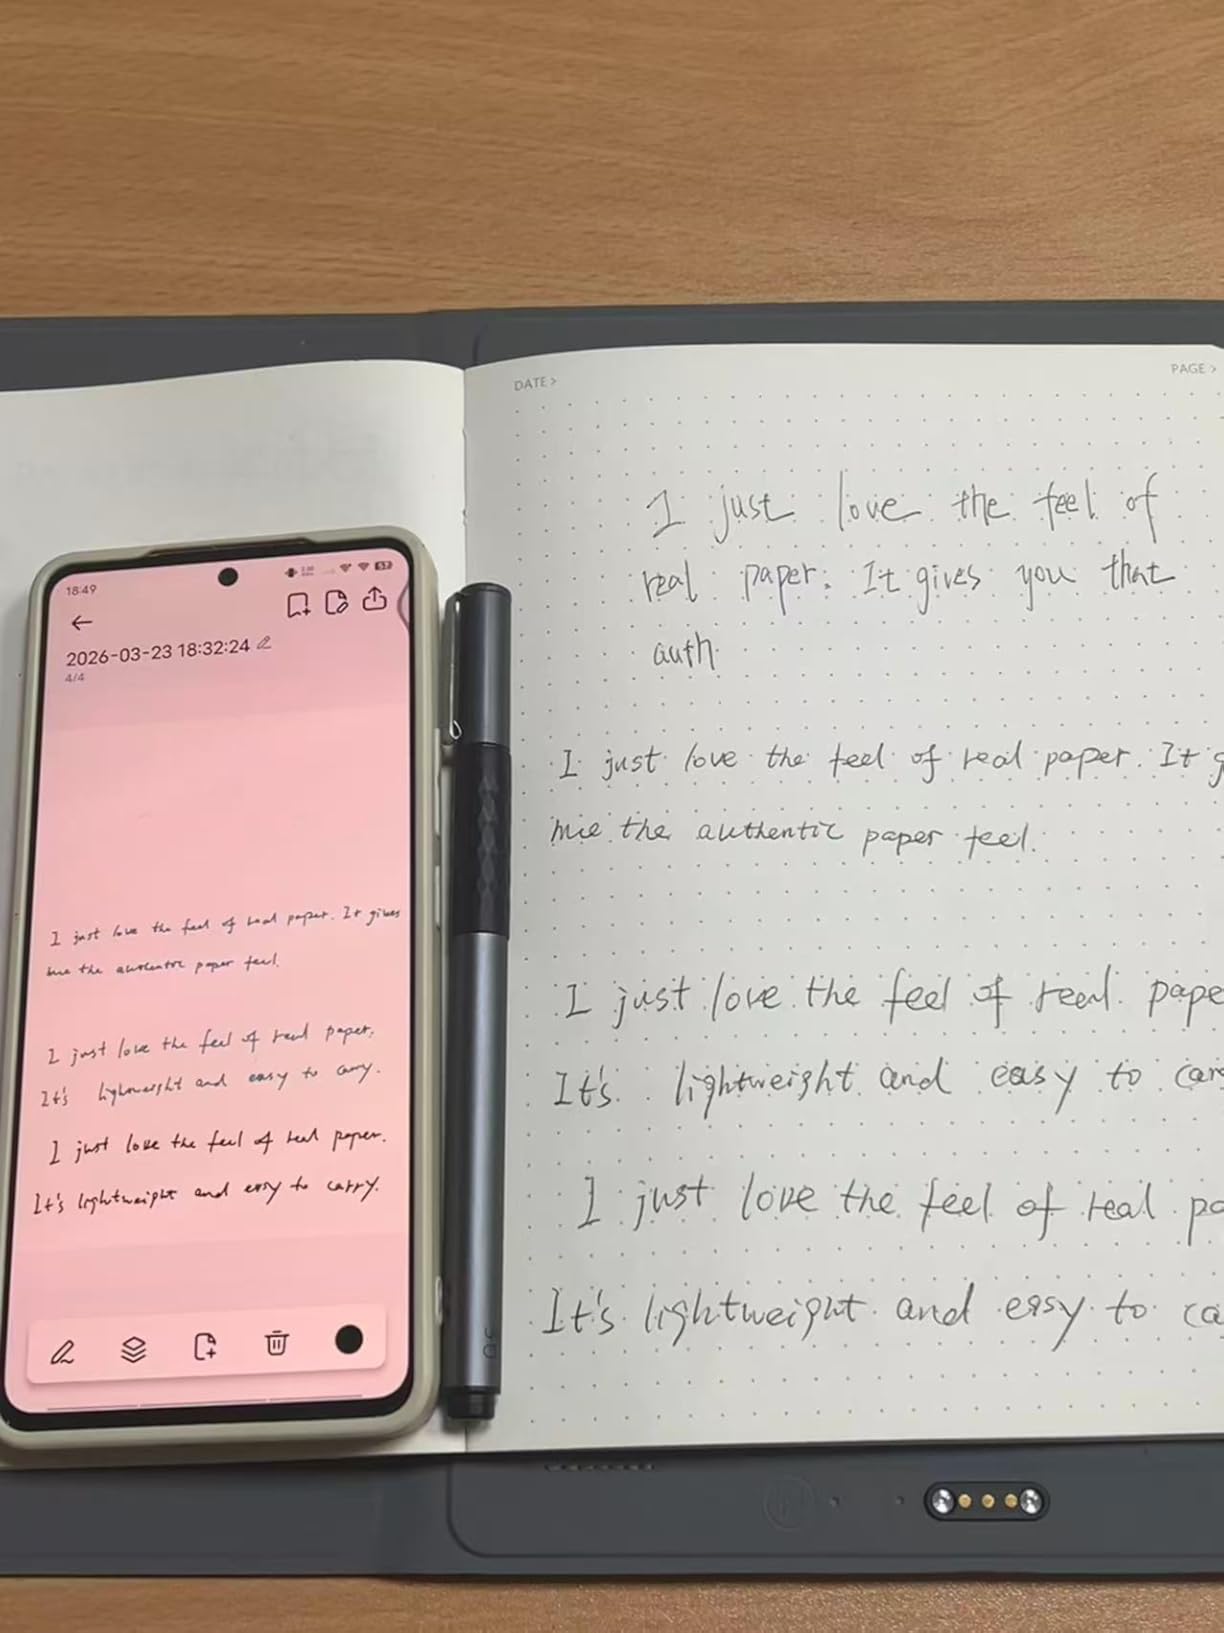 18:49
57
2026-03-23 18:32:24
4/4
I just love the feel of real paper. It gives
me the authentic paper feel.
I just love the feel of real paper.
It's lightweight and easy to carry.
I just love the feel of real paper.
It's lightweight and easy to carry.
DATE >
PAGE >
I just love the feel of
real paper. It gives you that
auth
I just love the feel of real paper. It g
me the authentic paper feel.
I just love the feel of real pape
It's lightweight and easy to car
I just love the feel of real pa
It's lightweight and easy to ca